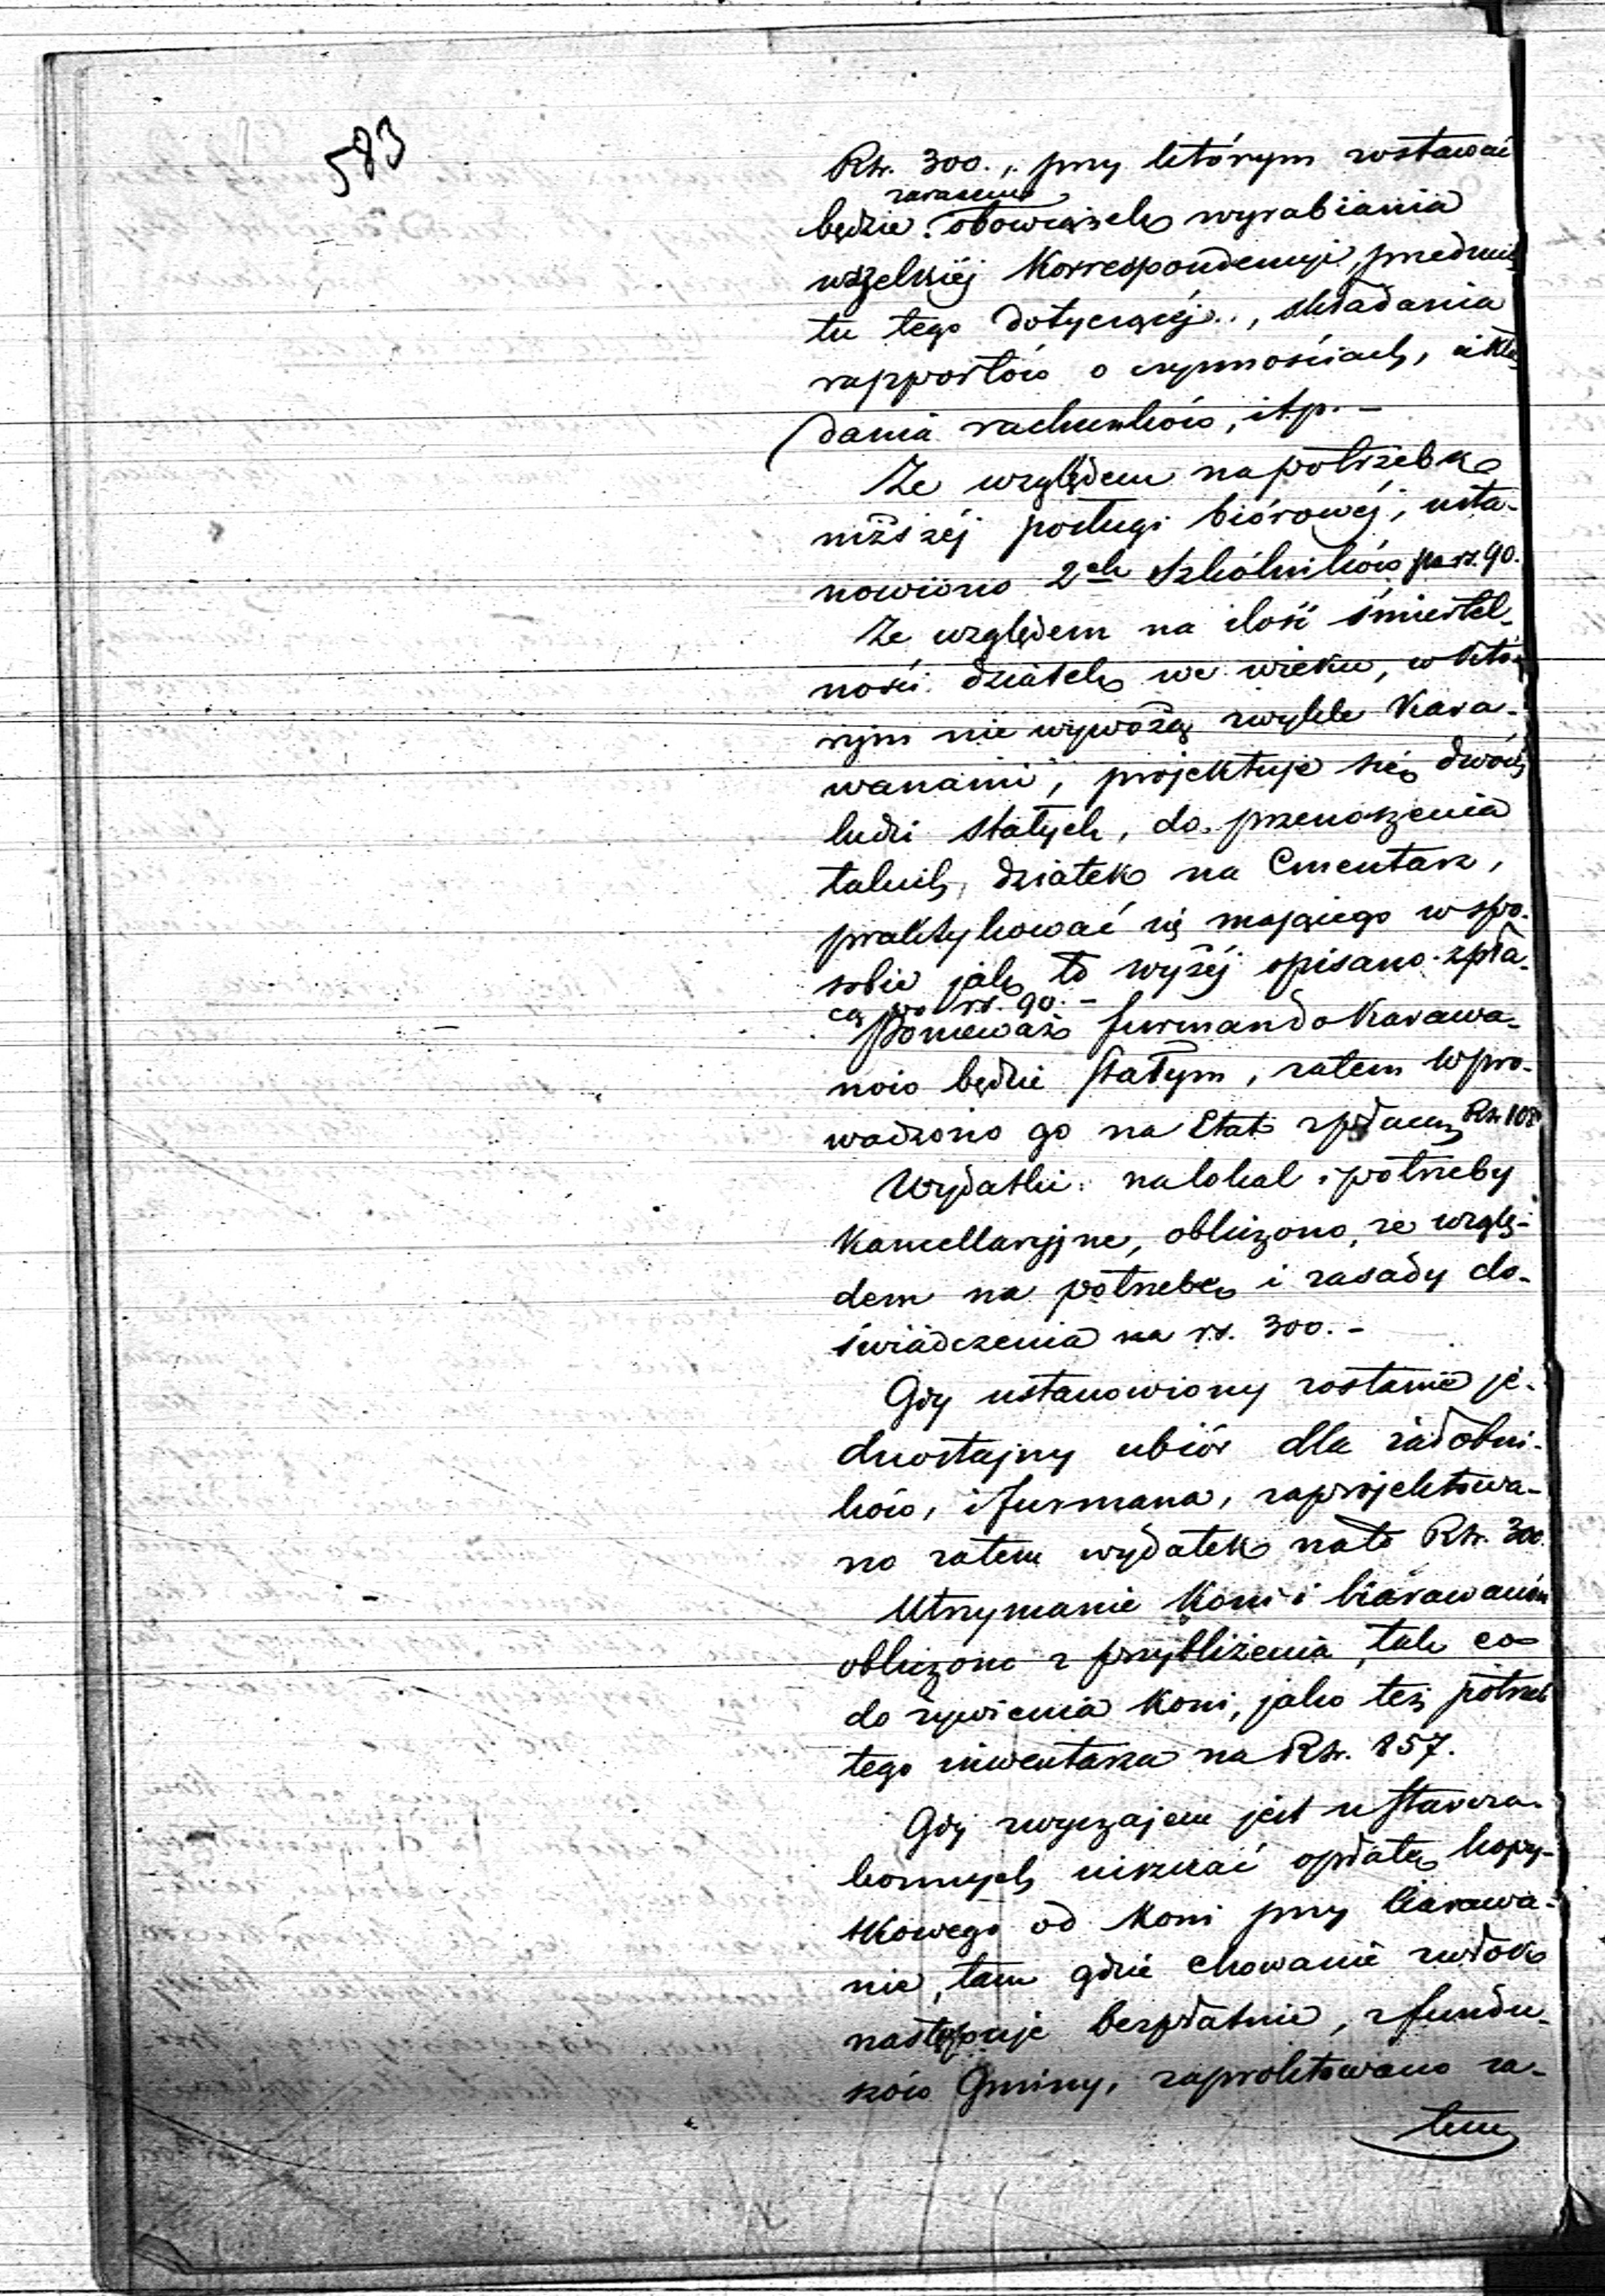 583
Rsr. 300., przy którym zostawać
zarazem
będzie obowiązek wyrabiania
wszelkiéj Korrespondencyi, przedmio
tu tego dotyczącéj, składania
rapportów o czynnościach, skła
dania rachunków, itp. –
Ze względem na potrzebkę
niższéj posługi biórowéj, usta-
nowiono 2ch Szkólników po rs. 90.
Ze względem na ilość śmiertel-
ności dziatek we wieku, w któ
rym nie wywożą zwykle Kara-
wanami, projektuje się dwóch
ludzi stałych, do przenoszenia
takich dziatek na Cmentarz,
praktykować się mającego w spo-
sobie jak to wyżéj opisano z pła-
cą po rs. 90. –
Ponieważ furman do Karawa-
nów będzie stałym, zatem wpro-
wadzono go na Etat z płacą Rsr 108
Wydatki na lokal i potrzeby
Kancellaryjne, obliczono, ze wzglę-
dem na potrzebę i zasady do-
świadczenia na rs. 300. –
Gdy ustanowiony zostanie je-
dnostajny ubiór dla żałobni-
ków, i furmana, zaprojektowa-
no zatem wydatek na to Rsr. 300.
Utrzymanie Koni i karawanów
obliczono z przybliżenia, tak co
do żywienia Koni, jako też potrzeb
tego inwentarza na Rsr. 857.
Gdy zwyczajem jest u Staroza-
konnych uiszczać opłatę kopy-
tkowego od Koni przy Karawa-
nie, tam gdzie chowanie zwłok
następuje bezpłatnie, z fundu-
szów Gminy, zaproktowano za-
tem